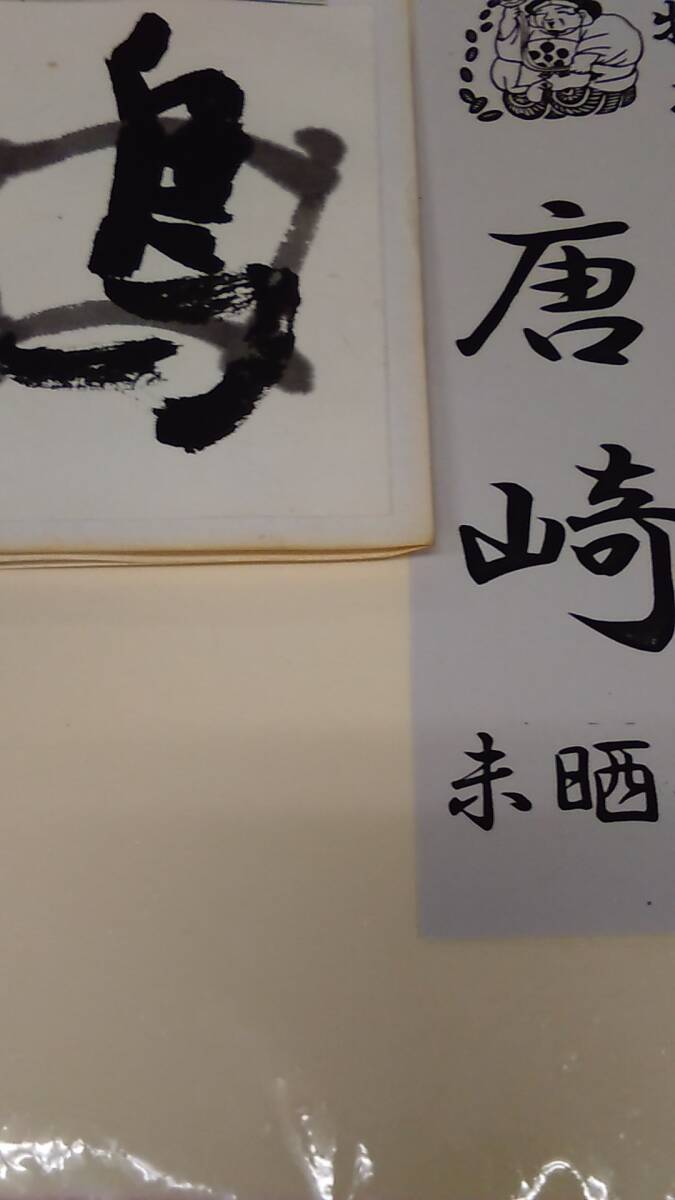 唐崎
未晒
鳥